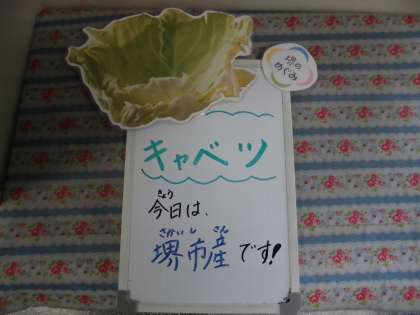 堺の
めぐみ
キャベツ
きょう
今日は、
さかいし さん
堺市産です!